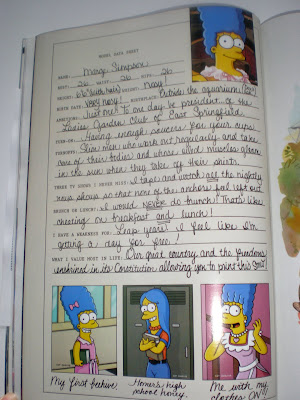 MODEL DATA SHEET
NAME: Marge Simpson
BUST: 26 WAIST: 26 HIPS: 26
HEIGHT: (with hair) WEIGHT: Nosy!
BIRTH DATE: Very nosy! BIRTHPLACE: Outside the aquarium
AMBITIONS: Just me? To one day be president of the
Ladies Garden Club of East Springfield.
TURN-ONS: Having enough covers for your ears!
TURNOFFS: Slim men who work out regularly and take
care of their bodies and whose muscles glisten
in the sun when they take off their shirts.
THREE TV SHOWS I NEVER MISS: I tape and watch all the nightly
news shows so that none of the anchors feel left out.
BRUNCH OR LUNCH: I would never do brunch! That's like
cheating on breakfast and lunch!
I HAVE A WEAKNESS FOR: Leap years! I feel like I'm
getting a day for free!
WHAT I VALUE MOST IN LIFE: Our great country and the freedoms
enshrined in its Constitution allowing you to print this smut!
My first beehive.
Homer's high
school honey.
Me with my
clothes ON!